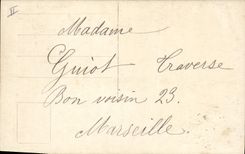 II
Madame
Guiot Traverse
Bon voisin 23.
Marseille.